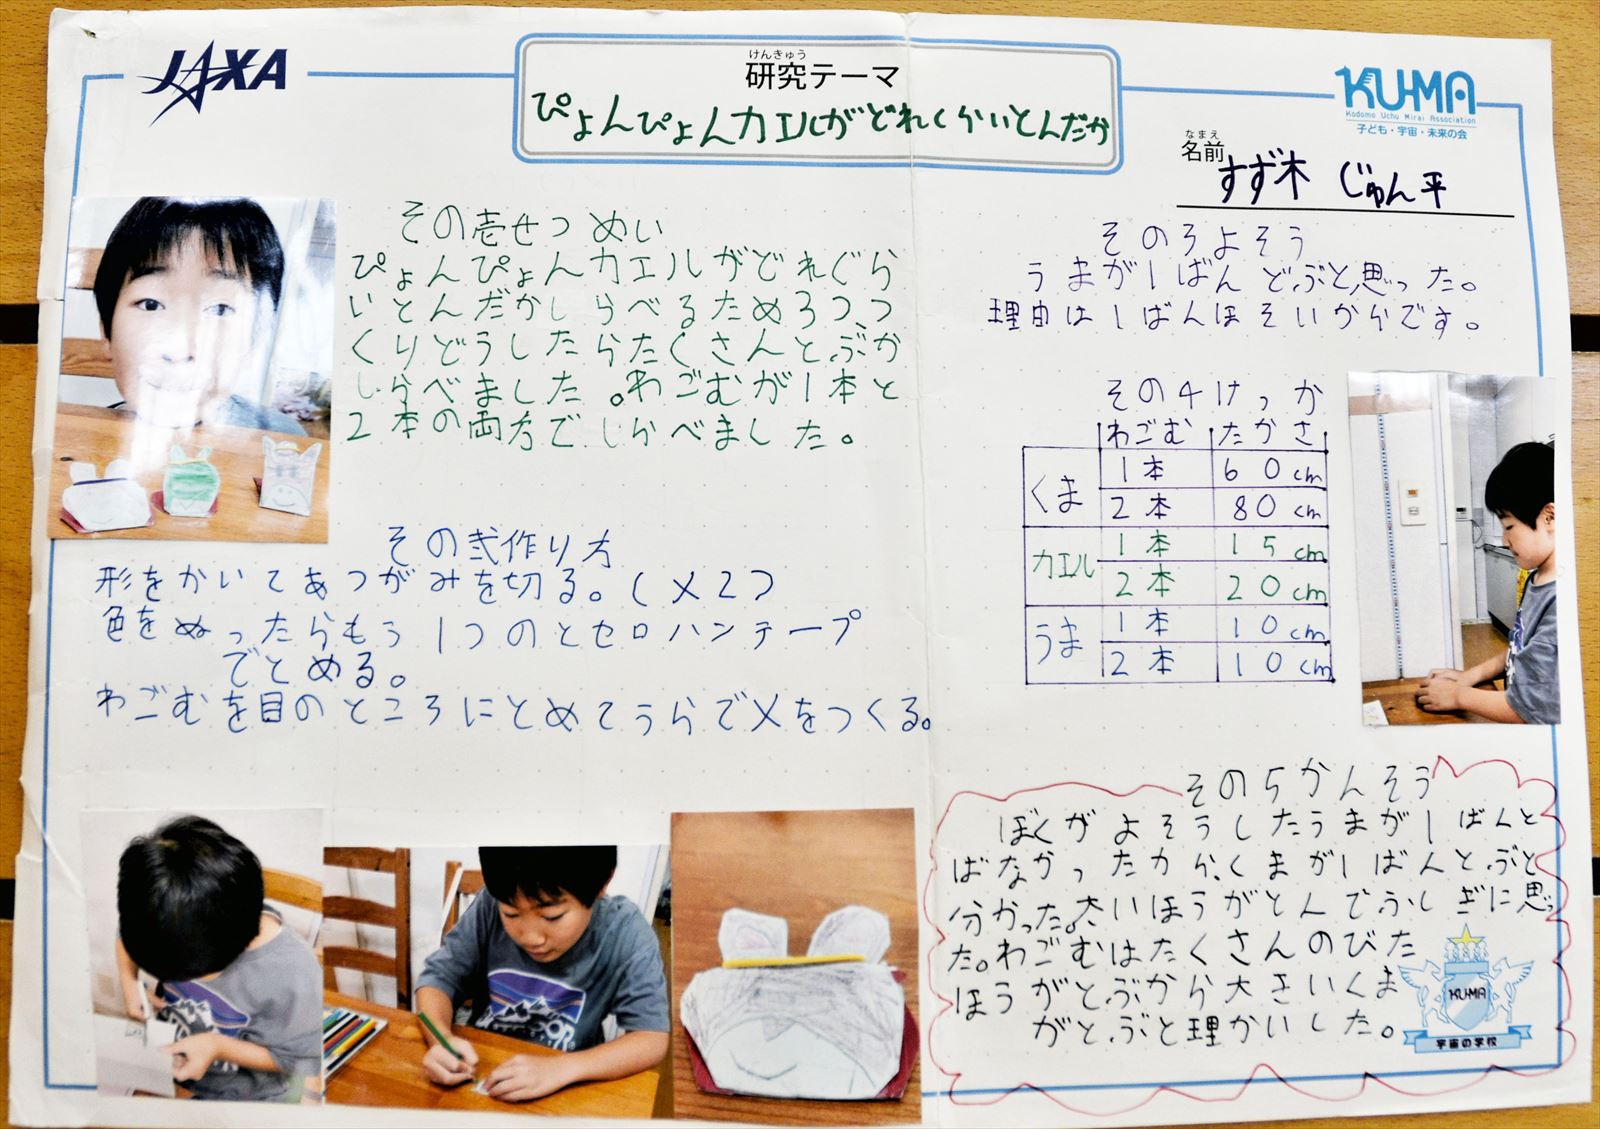 JAXA
けんきゅう
研究テーマ
ぴょんぴょんカエルがどれくらいとんだか
KU-MA
Kodomo Uchu Mirai Association
子ども・宇宙・未来の会
なまえ
名前
すず木 じゅん平
その壱せつめい
ぴょんぴょんカエルがどれぐら
いとんだかしらべるため3つつ
くりどうしたらたくさんとぶか
しらべました。わごむが1本と
2本の両方でしらべました。
その弐作り方
形をかいてあつがみを切る。(×2つ
色をぬったらもう1つのとセロハンテープ
でとめる。
わごむを目のところにとめてうらで×をつくる。
その3よそう
うまが1ばんどぶと思った。
理由は1ばんほそいからです。
その4けっか
わごむ たかさ
くま 1本 60cm
2本 80cm
カエル 1本 15cm
2本 20cm
うま 1本 10cm
2本 10cm
その5かんそう
ぼくがよそうしたうまが1ばんと
ばなかったから、くまが1ばんとぶと
分かった。大いほうがとんでふしぎに思っ
た。わごむはたくさんのびた
ほうがとぶから大きいくま
がとぶと理かいした。
KU-MA
宇宙の学校